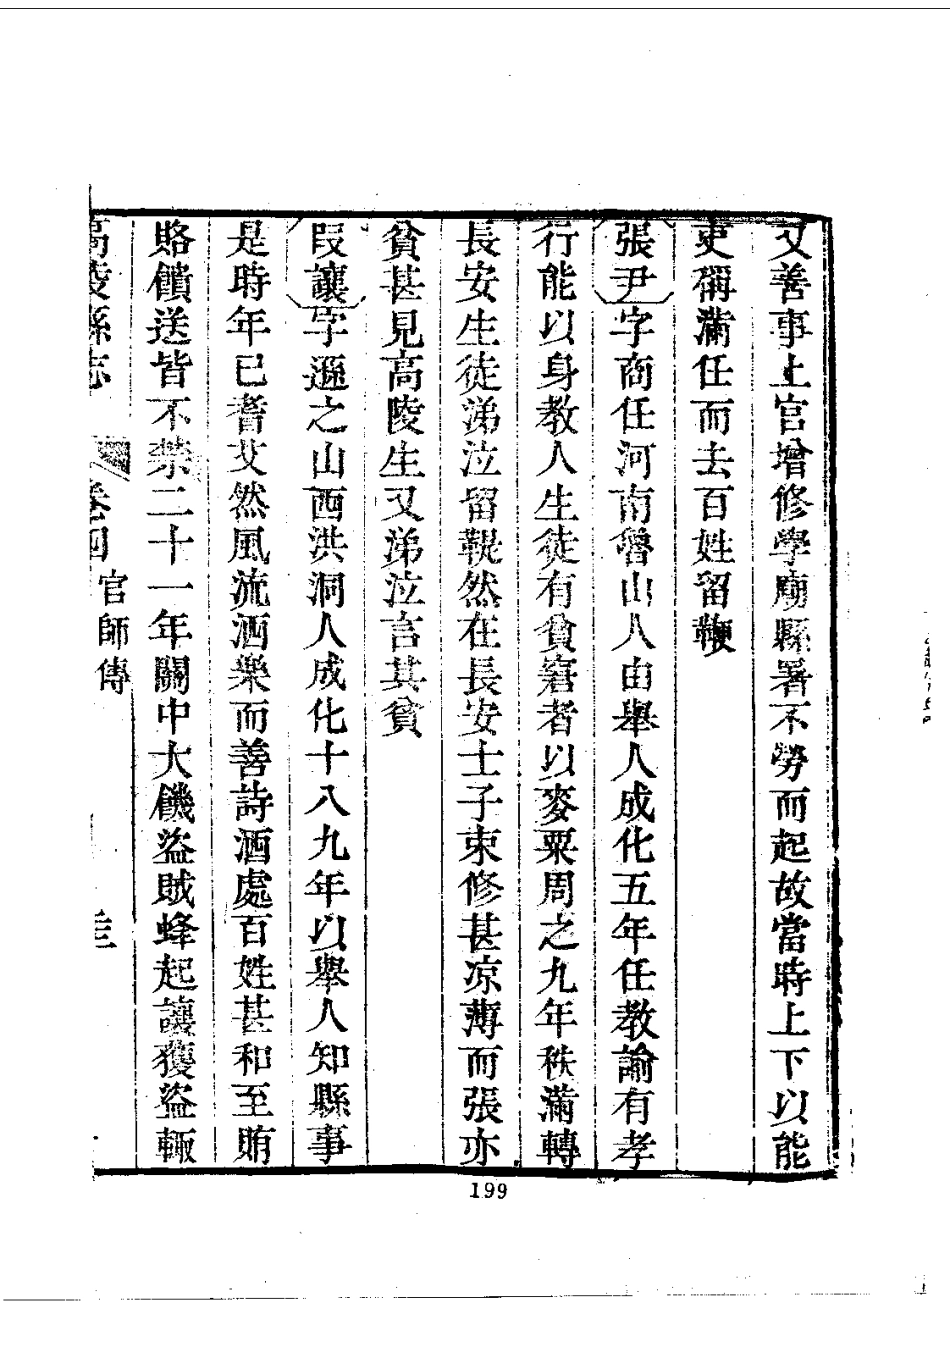 又善事上官增修學廟縣署不勞而起故當時上下以能
吏稱滿任而去百姓留鞭
張尹字商任河南魯山人由舉人成化五年任教諭有孝
行能以身教人生徒有貧窘者以麥粟周之九年秩滿轉
長安生徒涕泣留鞔然在長安士子束修甚凉薄而張亦
貧甚見高陵生又涕泣言其貧
段讓字遜之山西洪洞人成化十八九年以舉人知縣事
是時年已耆艾然風流洒樂而善詩酒處百姓甚和至賄
賂饋送皆不禁二十一年關中大饑盜賊蜂起讓獲盜輙
高陵縣志 卷四 官師傳
199